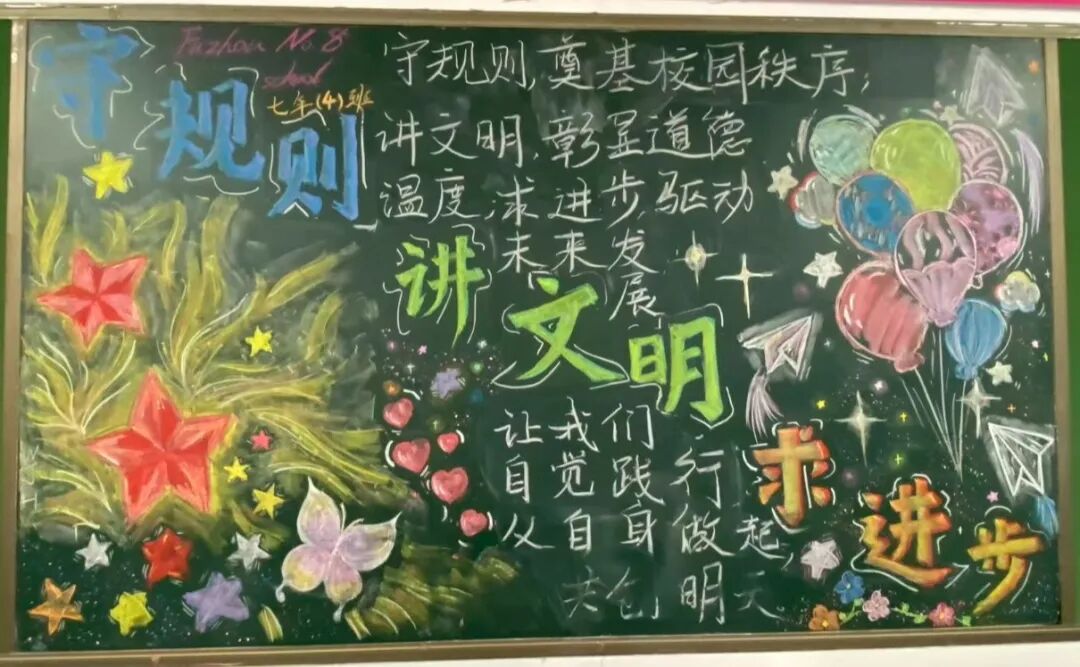 守规则
Fuzhou No.8
school
七年(4)班
守规则,奠基校园秩序;
讲文明,彰显道德
温度,求进步,驱动
未来发
展
讲文明
让我们
自觉践行
从自身做起,
共创明天
求进步